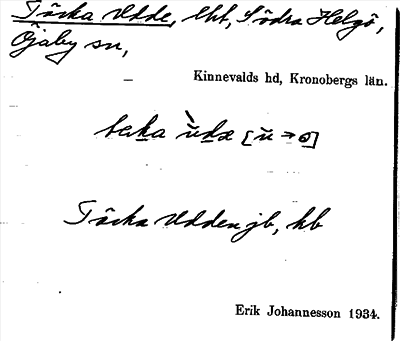 Täcka Udde, lht, Södra Helgö,
Öjaby sn,
Kinnevalds hd, Kronobergs län.
Täcka Udden jb, hb
Erik Johannesson 1934.